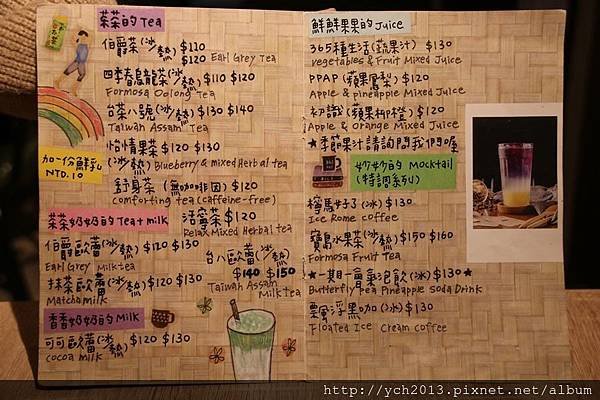 茶茶的 Tea
伯爵茶(冰熱) $120 $120
Earl Grey Tea
四季春烏龍茶(冰熱) $110 $120
Formosa Oolong Tea
台茶八號(冰熱) $130 $140
Taiwan Assam Tea
加一份鮮乳
NTD.10
怡情果茶 $120 $130
(冰熱) Blueberry & mixed Herbal tea
舒身茶 (無咖啡因) $120
comforting tea (caffeine-free)
活寧茶 $120
Relax Mixed Herbal tea
茶茶奶奶的 Tea+milk
伯爵歐蕾(冰熱) $120 $130
Earl Grey Milk tea
抹茶歐蕾(冰熱) $120 $130
Matcha milk
台八歐蕾(冰熱)
$140 $150
Taiwan Assam
Milk tea
香香奶奶的 Milk
可可歐蕾(冰熱) $120 $130
cocoa milk
鮮鮮果果的 Juice
365種生活(蔬果汁) $130
vegetables & Fruit Mixed Juice
PPAP (蘋果鳳梨) $120
Apple & pineapple Mixed Juice
初識(蘋果柳橙) $120
Apple & orange Mixed Juice
★季節果汁請詢問我們喔
妙妙的 Mocktail
(特調系列)
檸馬好了(冰) $130
Ice Rome coffee
寶島水果茶(冰熱) $150 $160
Formosa Fruit Tea
★一期一會氣泡飲(冰) $130★
Butterfly Pea Pineapple Soda Drink
飄浮黑咖(冰) $130
Floated Ice Cream coffee
http://ych2013.pixnet.net/album